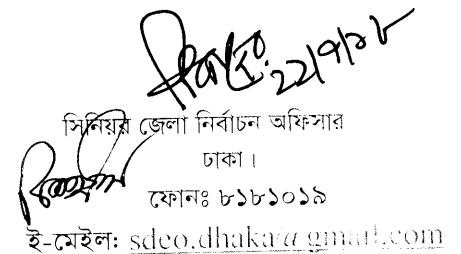 ২২/৭/১৮
সিনিয়র জেলা নির্বাচন অফিসার
ঢাকা।
ফোনঃ ৮১৮১০১৯
ই-মেইল: sdeo.dhaka@gmail.com